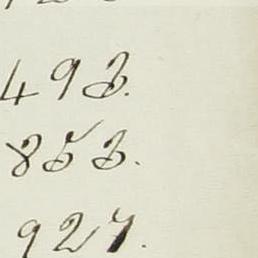 493.
853.
927.